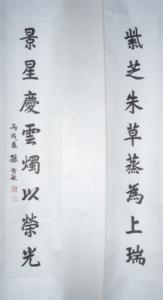 紫芝朱草蒸為上瑞
景星慶雲燭以榮光
丙戌春 孫